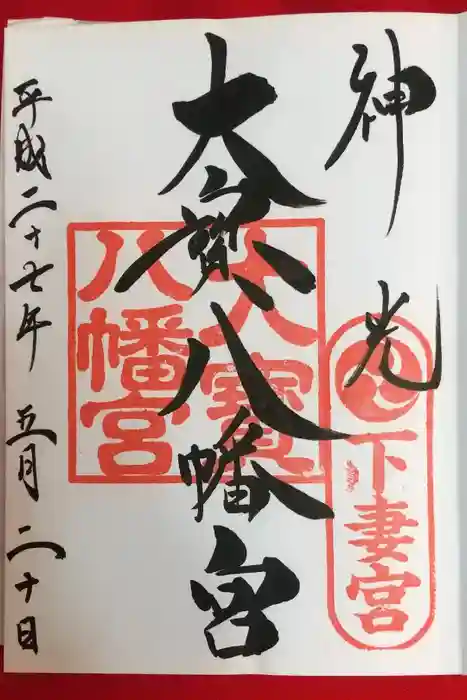 神光
下妻宮
大寳八幡宮
大寳八幡宮
平成二十七年五月二十日